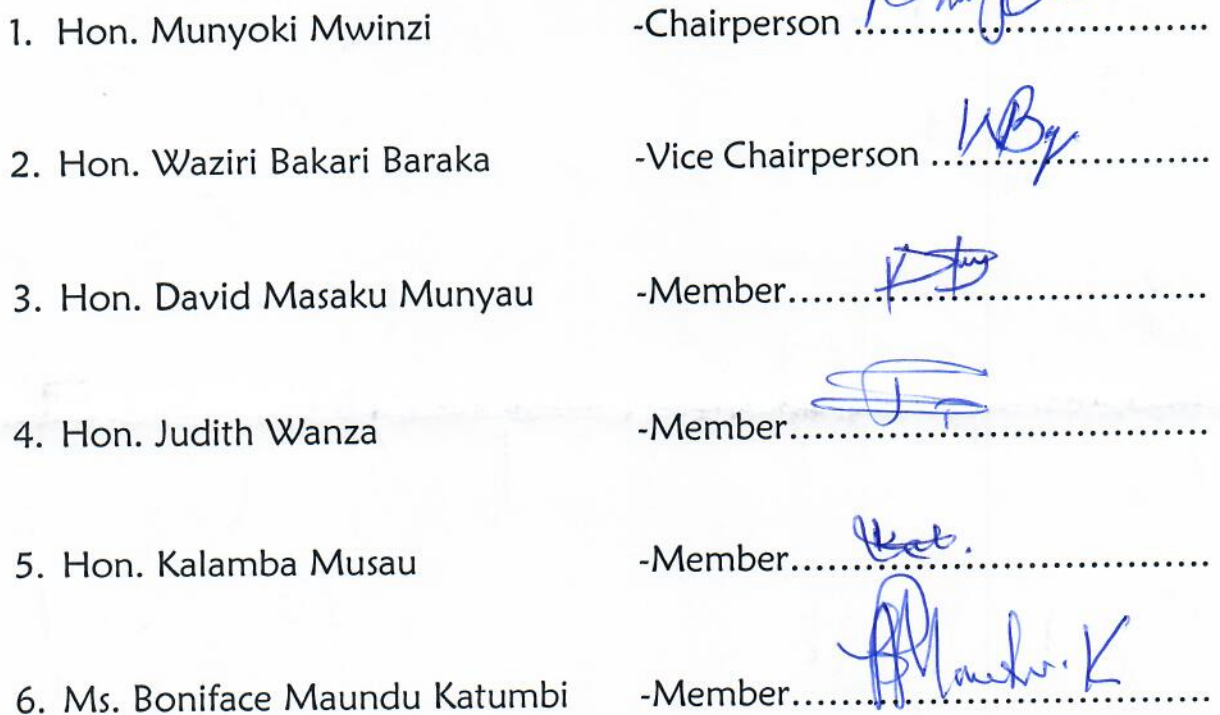 1. Hon. Munyoki Mwinzi -Chairperson ................................
2. Hon. Waziri Bakari Baraka -Vice Chairperson ..........................
3. Hon. David Masaku Munyau -Member.......................................
4. Hon. Judith Wanza -Member.......................................
5. Hon. Kalamba Musau -Member.......................................
6. Ms. Boniface Maundu Katumbi -Member.......................................